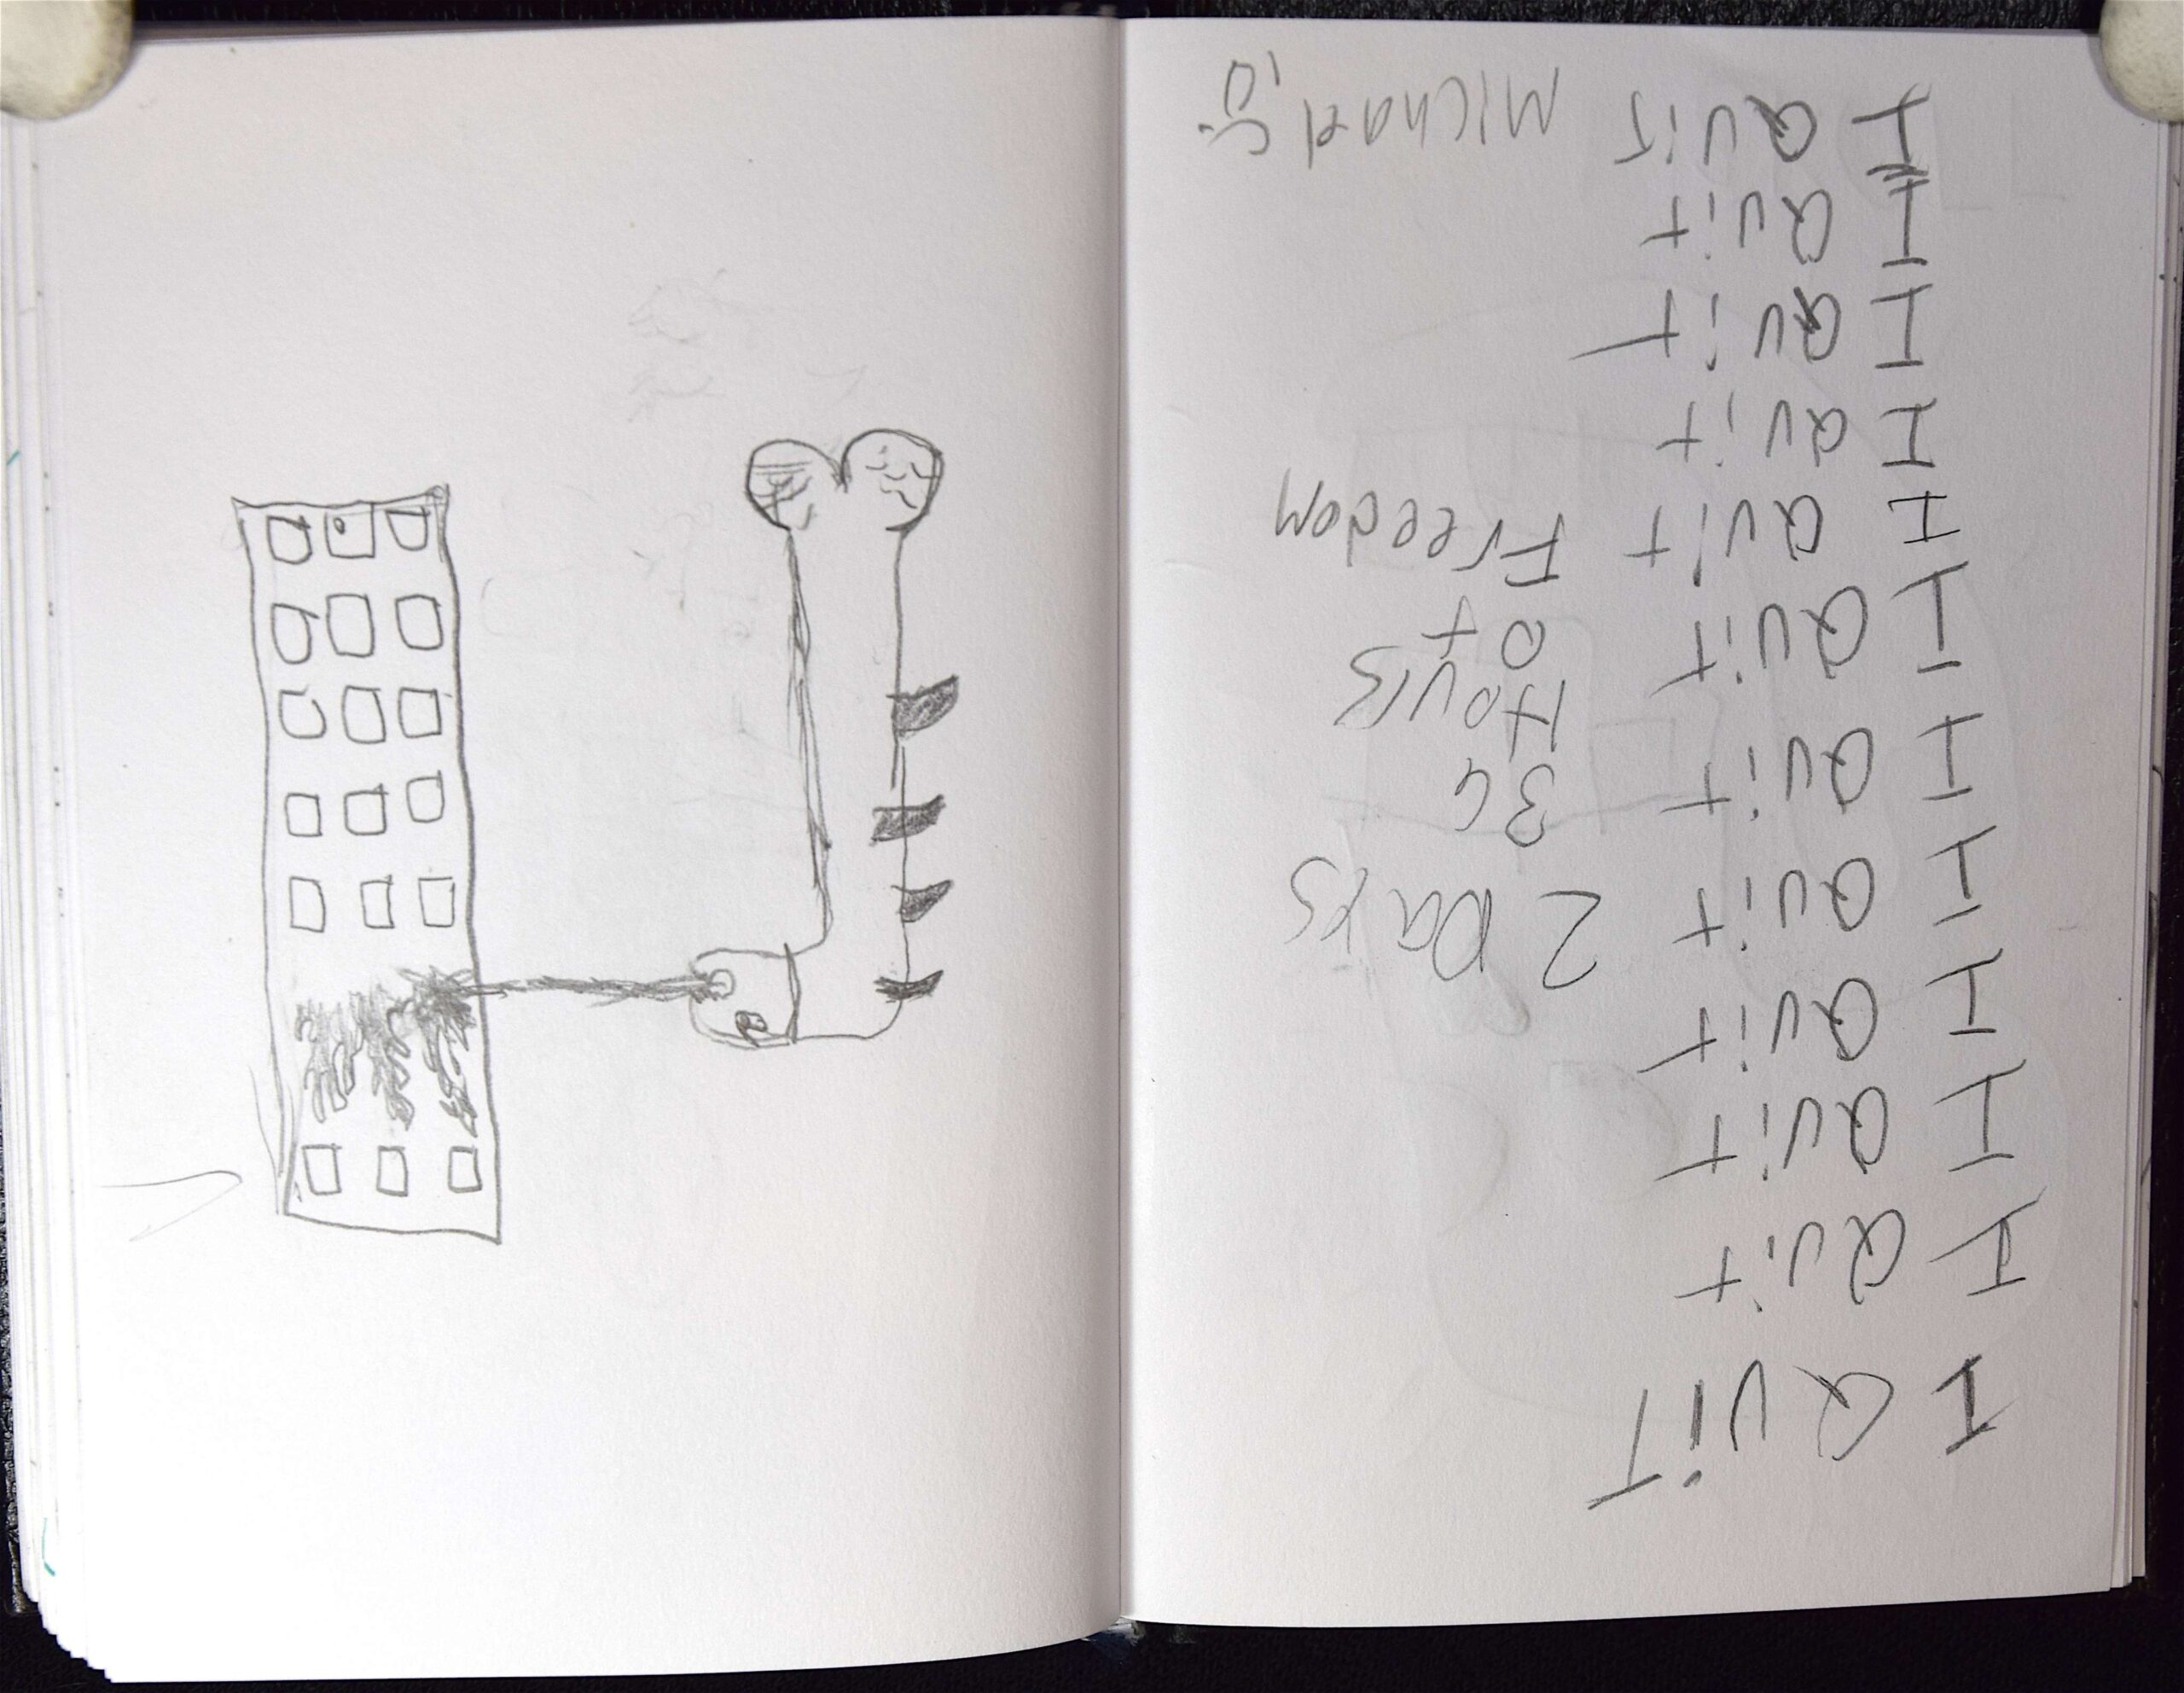 I QuiT
I Quit
I Quit
I Quit
I Quit
I Quit
I Quit
I Quit
I Quit
I Quit
I Quit
I QuiT
2 Days
34
Hours
of
Freedom
Michael